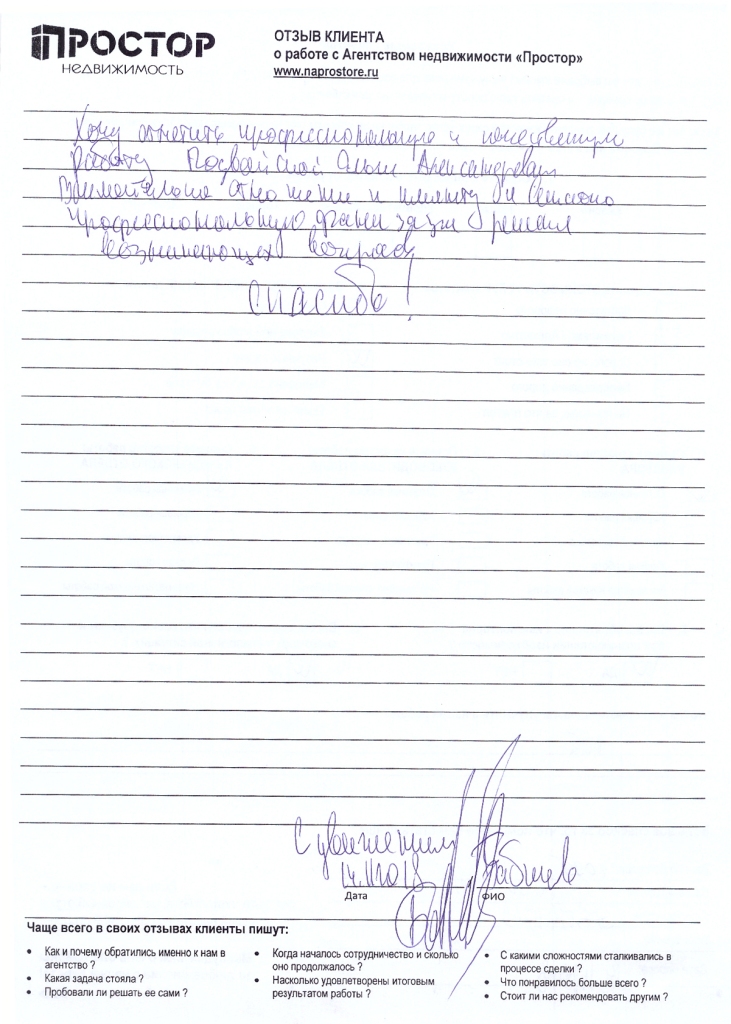 ПРОСТОР
НЕДВИЖИМОСТЬ
ОТЗЫВ КЛИЕНТА
о работе с Агентством недвижимости «Простор»
www.naprostore.ru
Хочу отметить профессиональную и качественную
работу Ольги Александровны
Внимательное отношение к клиенту и
профессиональную решения
возникающих вопросов
Спасибо!
С уважением
14.11.2018
Дата
ФИО
Чаще всего в своих отзывах клиенты пишут:
• Как и почему обратились именно к нам в
агентство ?
• Какая задача стояла ?
• Пробовали ли решать ее сами ?
• Когда началось сотрудничество и сколько
оно продолжалось ?
• Насколько удовлетворены итоговым
результатом работы ?
• С какими сложностями сталкивались в
процессе сделки ?
• Что понравилось больше всего ?
• Стоит ли нас рекомендовать другим ?